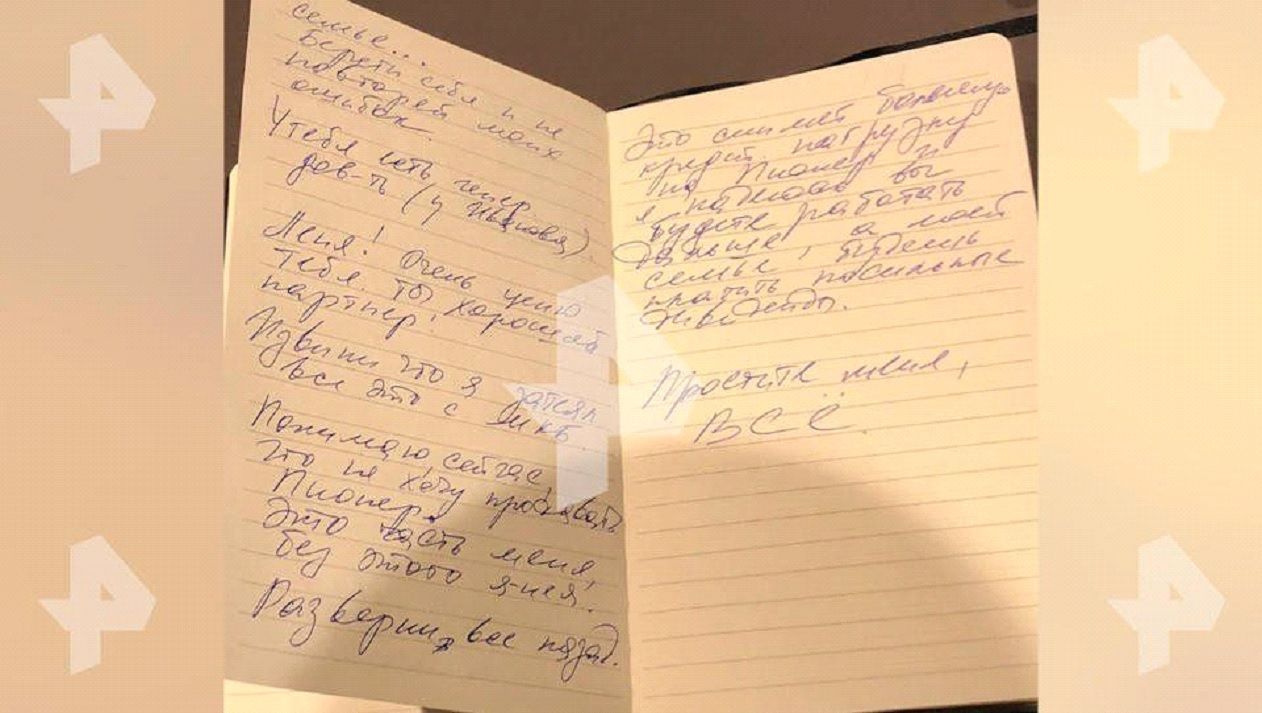 семье...
Береги себя и не
повторяй моих
ошибок.
У тебя есть генер
дов-ть (у Иванова)
Леня! Очень ценю
Тебя. Ты хороший
партнер.
Извини что я затеял
все это с МКБ.
Понимаю, сейчас,
что не хочу продавать
Пионер.
Это часть меня,
без этого я-не я.
Разверни все назад.
Это снимет большую
кредит нагрузку
на Пионер и
я надеюсь вы
будете работать
дальше, а моей
семье, будешь
платить посильные
дивиденды.
Простите меня,
ВСЁ.